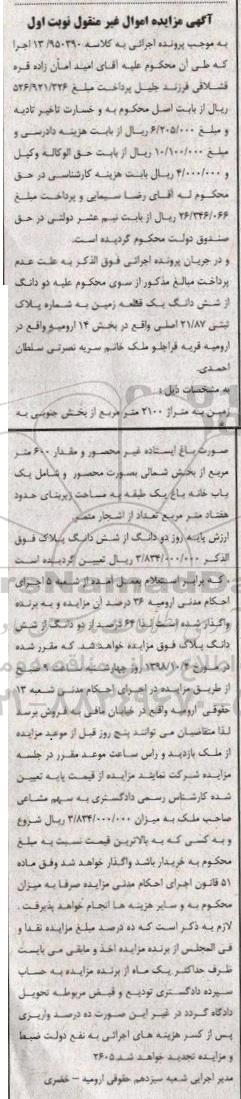 آگهی مزایده اموال غیر منقول نوبت اول
به موجب پرونده اجرائی به کلاسه ۱۳/۹۵۰۳۹۰ اجرا
که طی آن محکوم علیه آقای امید امان زاده قره
قشلاقی فرزند جلیل پرداخت مبلغ ۵۲۶/۹۲۱/۳۲۶
ریال از بابت اصل محکوم به و خسارت تاخیر تادیه
و مبلغ ۶/۲۰۵/۰۰۰ ریال از بابت هزینه دادرسی و
مبلغ ۱۰/۱۰۰/۰۰۰ ریال از بابت حق الوکاله وکیل
و ۴/۰۰۰/۰۰۰ ریال بابت هزینه کارشناسی در حق
محکوم له آقای رضا سیمایی و پرداخت مبلغ
۲۶/۳۴۶/۰۶۶ ریال از بابت نیم عشر دولتی در حق
صندوق دولت محکوم گردیده است.
و در جریان پرونده اجرائی فوق الذکر به علت عدم
پرداخت مبالغ مذکور از سوی محکوم علیه دو دانگ
از شش دانگ یک قطعه زمین به شماره پلاک
ثبتی ۲۱/۸۷ اصلی واقع در بخش ۱۴ ارومیه واقع در
ارومیه قریه قراجلو ملک خانم سریه نصرتی سلطان
احمدی.
به مشخصات ذیل :
زمین به متراژ ۲۱۰۰ متر مربع از بخش جنوبی به
صورت باغ ایستاده غیر محصور و مقدار ۶۰۰ متر
مربع از بخش شمالی بصورت محصور و شامل یک
باب خانه باغ یک طبقه به مساحت زیربنای حدود
هفتاد متر مربع تعداد از اشجار مثمر
ارزش پایه روز دو دانگ از شش دانگ پلاک فوق
الذکر ۳/۸۳۴/۰۰۰/۰۰۰ ریال تعیین گردیده است
که برابر استعلام بعمل آمده از شعبه ۵ اجرای
احکام مدنی ارومیه ۳۶ درصد آن مزایده و به برنده
واگذار شده است لذا ۶۴ درصد از دو دانگ از شش
دانگ پلاک فوق مزایده خواهد شد. که مقرر شده
در مورخ ۱۳۹۸/۱۰/۴ روز چهارشنبه ساعت ۹ صبح
از طریق مزایده در اجرای احکام مدنی شعبه ۱۳
حقوقی ارومیه واقع در خیابان مافی به فروش برسد
لذا متقاضیان می توانند پنج روز قبل از موعد مزایده
از ملک بازدید و راس ساعت موعد مقرر در جلسه
مزایده شرکت نمایند مزایده از قیمت پایه تعیین
شده کارشناس رسمی دادگستری به سهم مشاعی
صاحب ملک به میزان ۳/۸۳۴/۰۰۰/۰۰۰ ریال شروع
و به کسی که به بالاترین قیمت نسبت به مبلغ
محکوم به خریدار باشد واگذار خواهد شد وفق ماده
۵۱ قانون اجرای احکام مدنی مزایده صرفا به میزان
محکوم به و سایر هزینه ها انجام خواهد پذیرفت.
لازم به ذکر است که ده درصد مبلغ مزایده نقدا و
فی المجلس از برنده مزایده اخذ و مابقی می بایست
ظرف حداکثر یک ماه از برنده مزایده به حساب
سپرده دادگستری تودیع و قبض مربوطه تحویل
دادگاه گردد در غیر این صورت ده درصد واریزی
پس از کسر هزینه های اجرائی به نفع دولت ضبط
و مزایده تجدید خواهد شد ۲۶۰۵
مدیر اجرایی شعبه سیزدهم حقوقی ارومیه - خضری